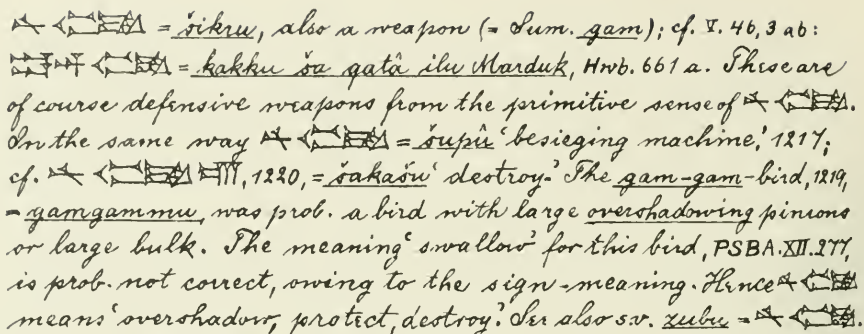 = šikru, also a weapon (= Sum. gam); cf. V. 46, 3 ab:
= kakku ša qatâ ilu Marduk, Hwb. 661 a. These are
of course defensive weapons from the primitive sense of
In the same way = šupû 'besieging machine,' 1217;
cf. , 1220, = šakašu 'destroy.' The gam-gam-bird, 1219,
= gamgammu, was prob. a bird with large overshadowing pinions
or large bulk. The meaning 'swallow' for this bird, PSBA. XII. 277,
is prob. not correct, owing to the sign-meaning. Hence
means 'overshadow, protect, destroy.' See also s.v. zubu =